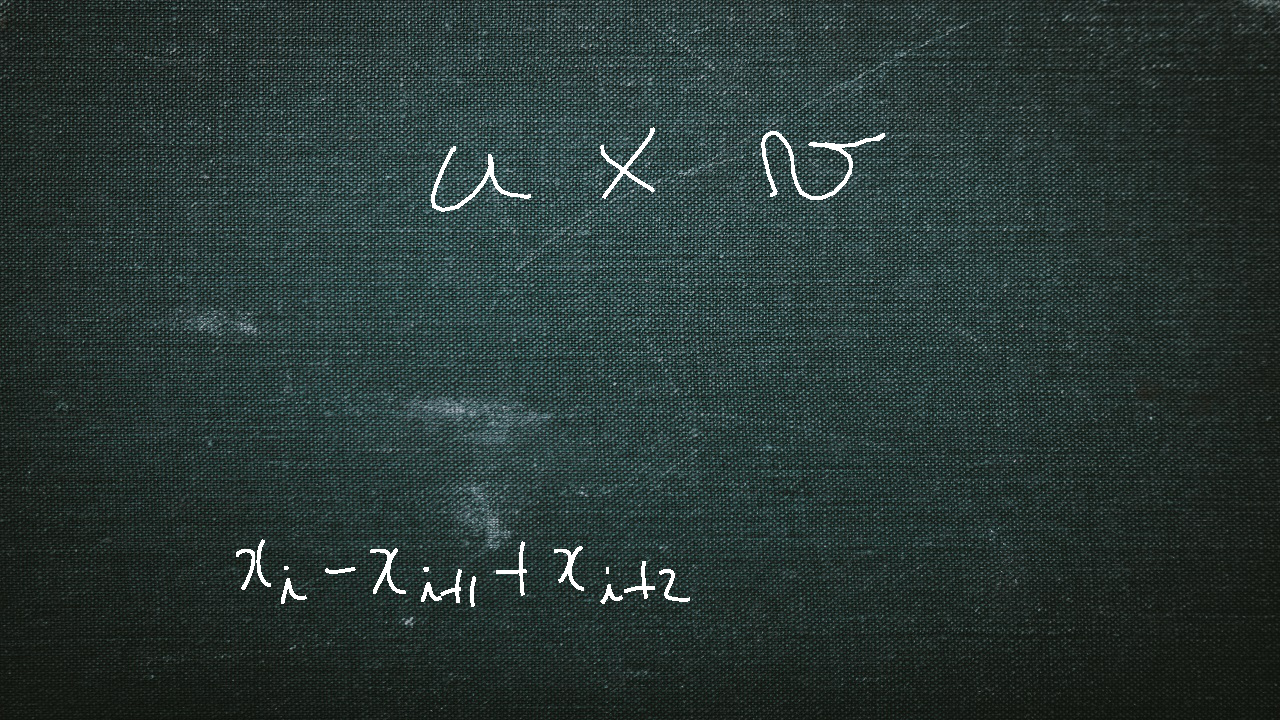 u × v
x_i - x_{i+1} + x_{i+2}